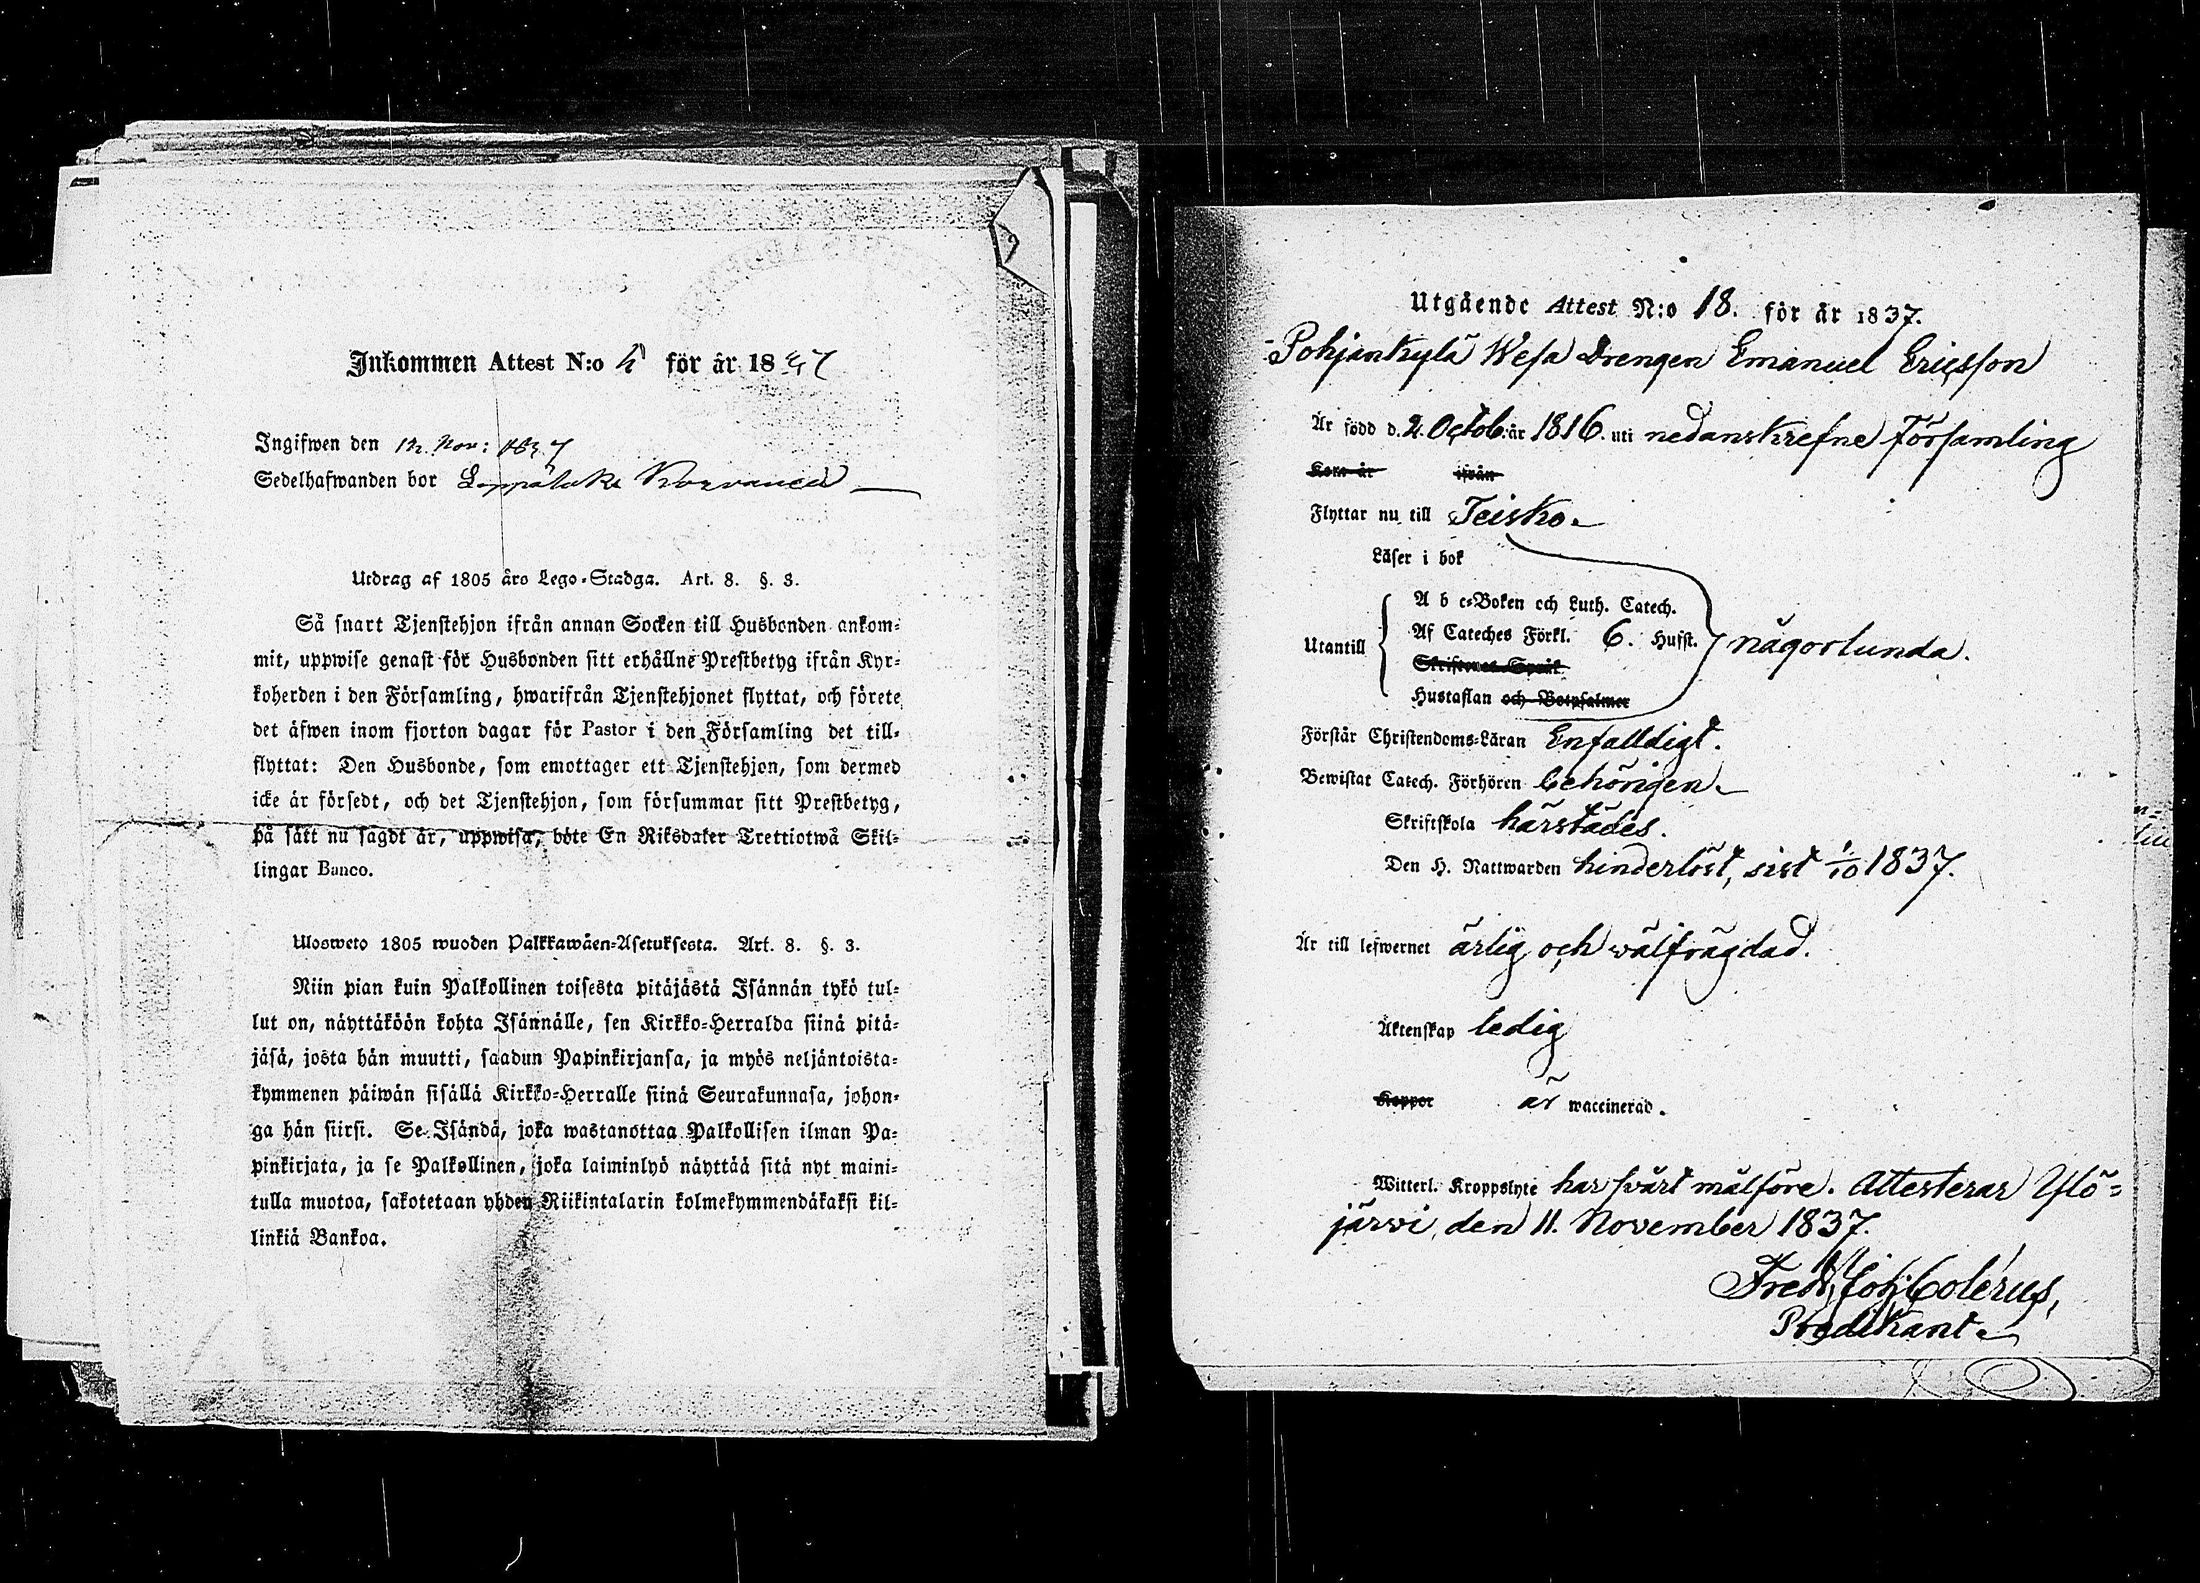 Inkommen Attest N:o 4 för år 1837
Ingifwen den 12. Nov: 1837
Sedelhafwanden bor
Utdrag af 1805 års Lego-Stadga. Art. 8. §. 3.
Så snart Tjenstehjon ifrån annan Socken till Husbonden ankom-
mit, uppwise genast för Husbonden sitt erhållne Prestbetyg ifrån Kyr-
koherden i den Församling, hwarifrån Tjenstehjonet flyttat, och förete
det äfwen inom fjorton dagar för Pastor i den Församling det till-
flyttat: Den Husbonde, som emottager ett Tjenstehjon, som dermed
icke är försedt, och det Tjenstehjon, som försummar sitt Prestbetyg,
på sätt nu sagdt är, uppwisa, böte En Riksdaler Trettiotwå Skil-
lingar Banco.
Ulosweto 1805 wuoden Palkkawäen-Asetuksesta. Art. 8. §. 3.
Niin pian kuin Palkollinen toisesta pitäjästä Isännän tykö tul-
lut on, näyttäköön kohta Isännälle, sen Kirkko-Herralda siinä pitä-
jäsä, josta hän muutti, saadun Papinkirjansa, ja myös neljäntoista-
kymmenen päiwän sisällä Kirkko-Herralle siinä Seurakunnasa, johon-
ga hän siirsi. Se Isändä, joka wastanottaa Palkollisen ilman Pa-
pinkirjata, ja se Palkollinen, joka laiminlyö näyttää sitä nyt maini-
tulla muotoa, sakotetaan yhden Riikintalarin kolmekymmendäkaksi kil-
linkiä Bankoa.
Utgående Attest N:o 18. för år 1837.
Pohjankylä Wesa Drengen Emanuel Ericsson
Är född d. 2. Octob. år 1816. uti nedanskrefne Församling
Kom år ifrån
Flyttar nu till Teisko.
Läser i bok
A b c-Boken och Luth. Catech.
Utantill Af Cateches Förkl. 6. Hufst. någorlunda.
Skriftenes Språk
Hustaflan och Botpsalmer
Förstår Christendoms-Läran Enfalldigt.
Bewistat Catech. Förhören behörigen.
Skriftskola härstädes.
Den H. Nattwarden hinderlöst, sist 1/10 1837.
Är till lefwernet ärlig och wälfrägdad.
Äktenskap ledig
Koppor är waccinerad.
Witterl. Kroppslyte har svårt målföre. Attesterar Ylö-
järwi, den 11. November 1837.
Fredr. Joh: Colérus,
Predikant.